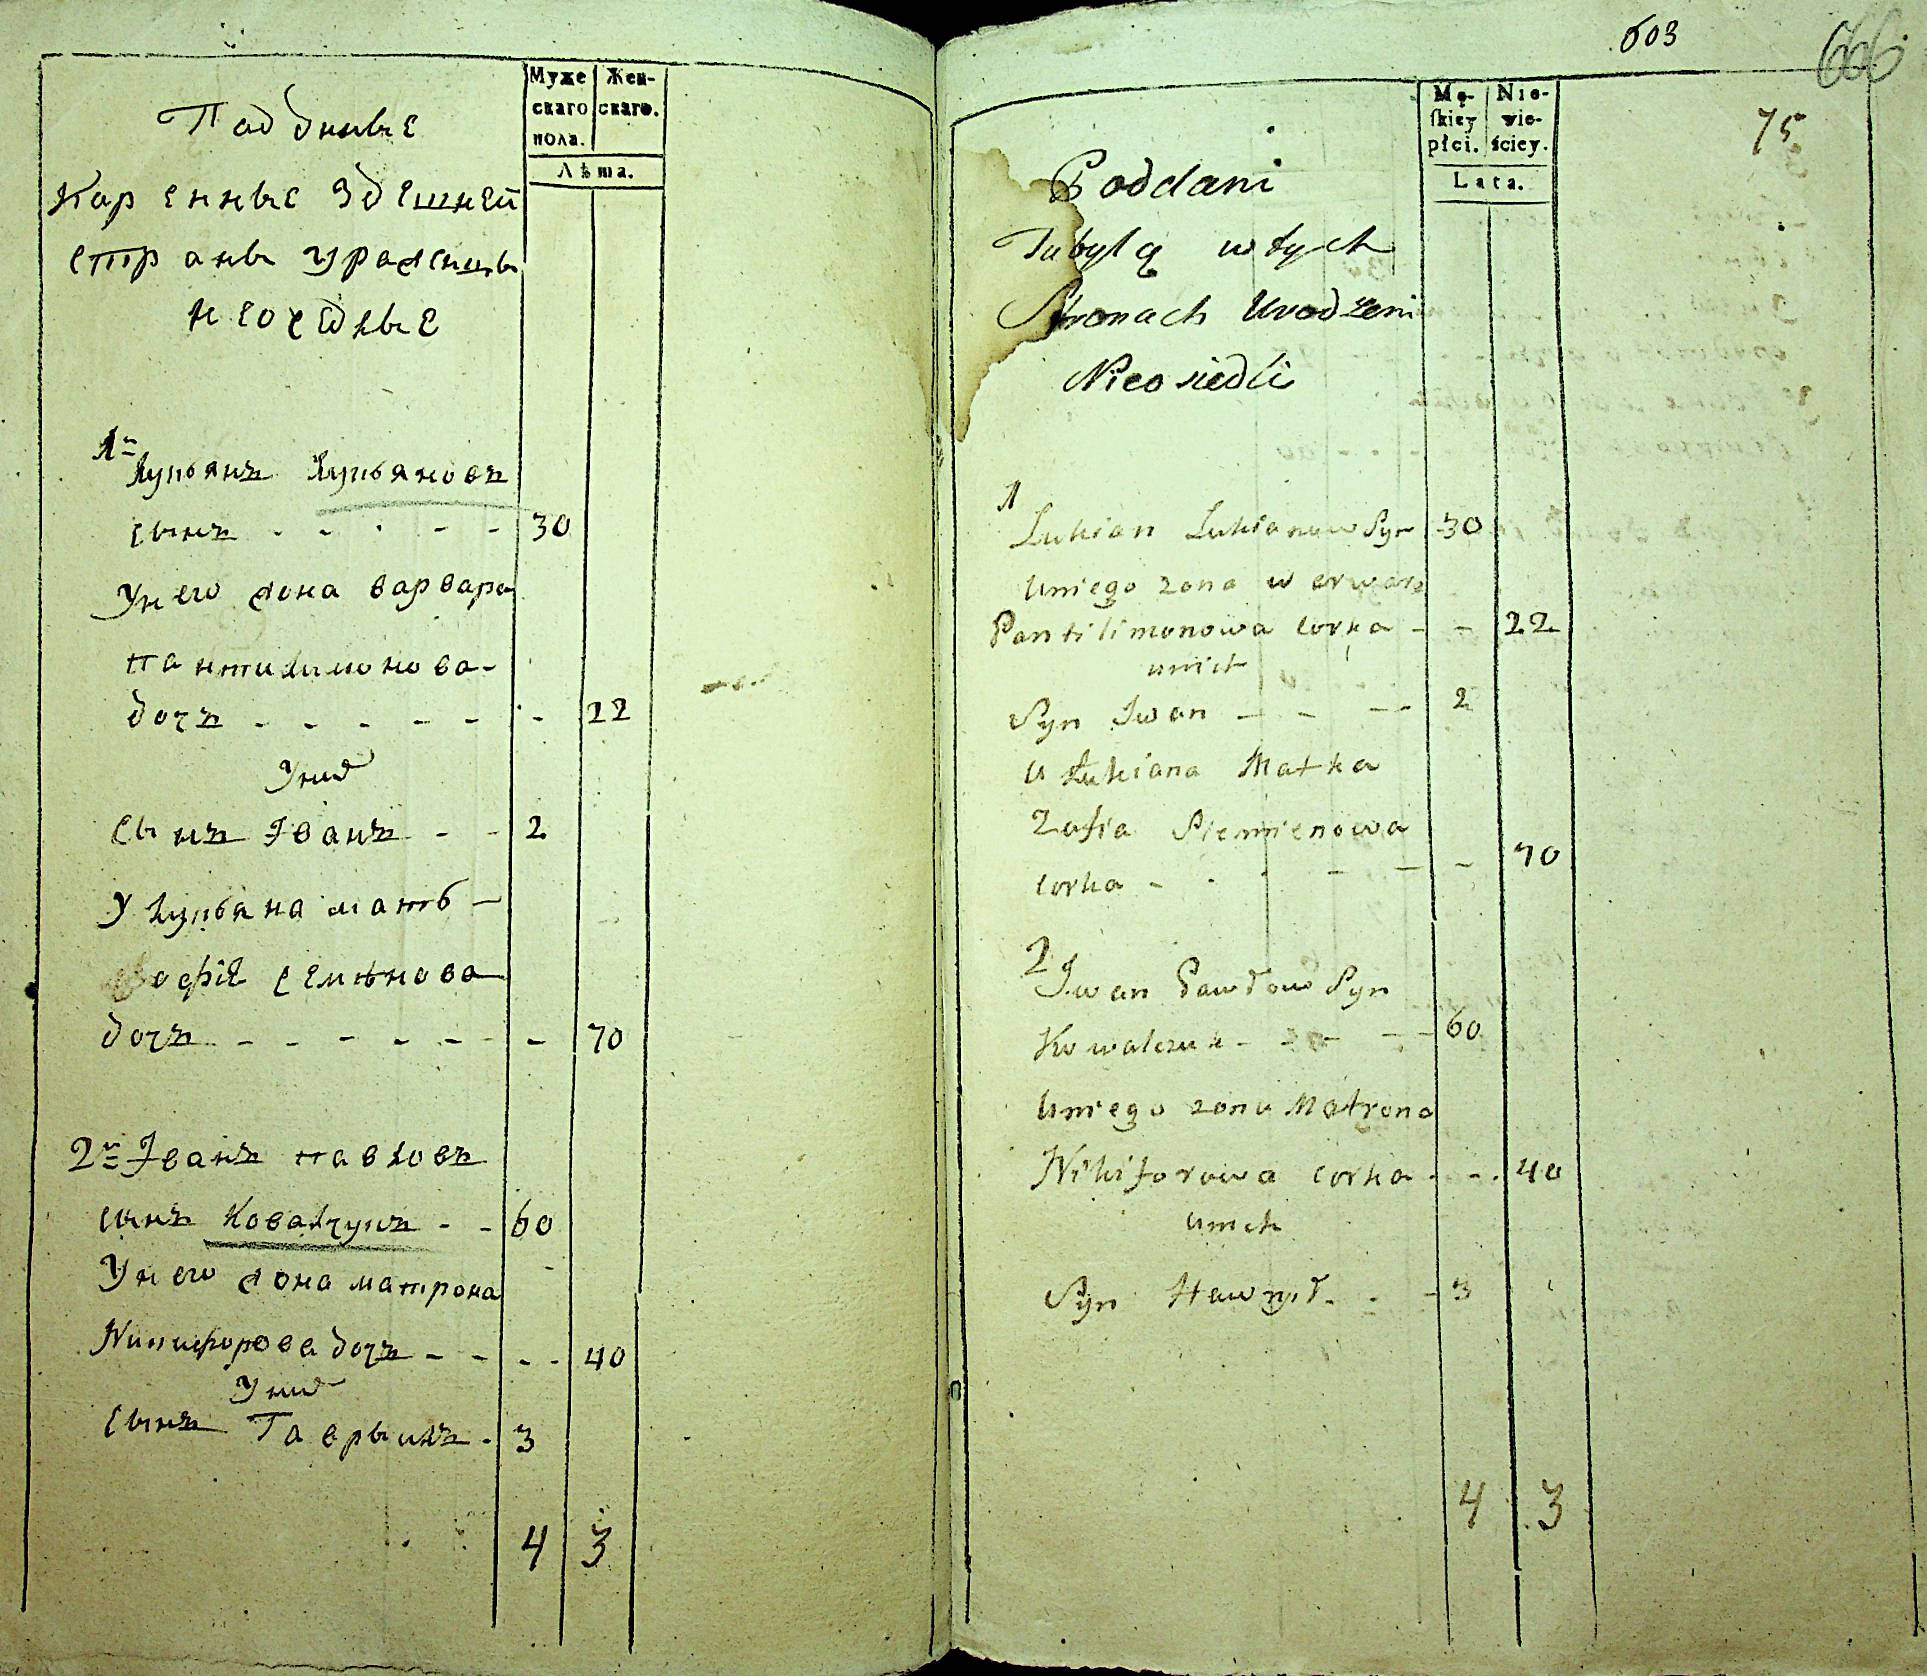 Муже
скаго
пола.
Жен-
скаго.
Лѣта.
Подднные
Кореные здешней
страны уроженцы
неоседлые
1й
Лукьянъ Лукьяновъ
сынъ - - - - - 30
У него жона варвара
пантилимонова-
дочъ - - - - - - - 22
У них
Сынъ Іванъ - - 2
У Лукьяна мать -
Зофія семѣнова
дочъ - - - - - - - 70
2й Іванъ павловъ
сынъ Ковалчукъ - - 60
У него жона матрона
Никифорова дочъ - - - - 40
У них
Сынъ Гаврылъ - 3
4 3
603
606
75
Mę-
skiey
płci.
Nie-
wie-
ściey.
Lata.
Poddani
Tubylcy w tych
Stronach Urodzeni
Nieosiedli
1
Lukian Lukianow Syn 30
U niego zona Warwara
Pantilimonowa corka - - 22
unich
Syn Iwan - - - - 2
U Łukiana Matka
Zofia Siemienowa
corka - - - - - - 70
2
Iwan Pawłow Syn
Kowalczuk - - - - - 60
Uniego zona Matrona
Nikiforowa corka - - . 40
unich
Syn Hawrył - - - 3
4 3